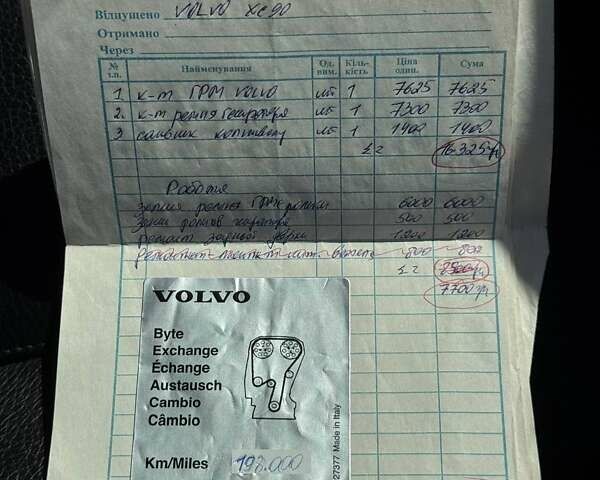 Відпущено VOLVO XC90
Отримано
Через
№ з.п. Найменування Од. вим. Кіль-кість Ціна один. Сума
1 к-т ГРМ VOLVO шт 1 7625 7625
2. к-т ремня генератора шт 1 7300 7300
3 сальник шт 1 1400 1400
Σ 2 16.325
Робота
ремня ГРМ+ролики 6000 6000
500 500
ремонт задньої 1200 1200
800 800
Σ 2 8500
7700
VOLVO
Byte
Exchange
Échange
Austausch
Cambio
Câmbio
Km/Miles 198.000
27377 Made in Italy